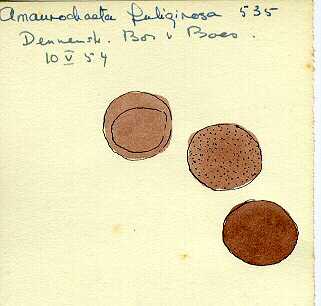 Amaurochaete fuliginosa 535
Dennensk. Bos v Boeo.
10 V 54